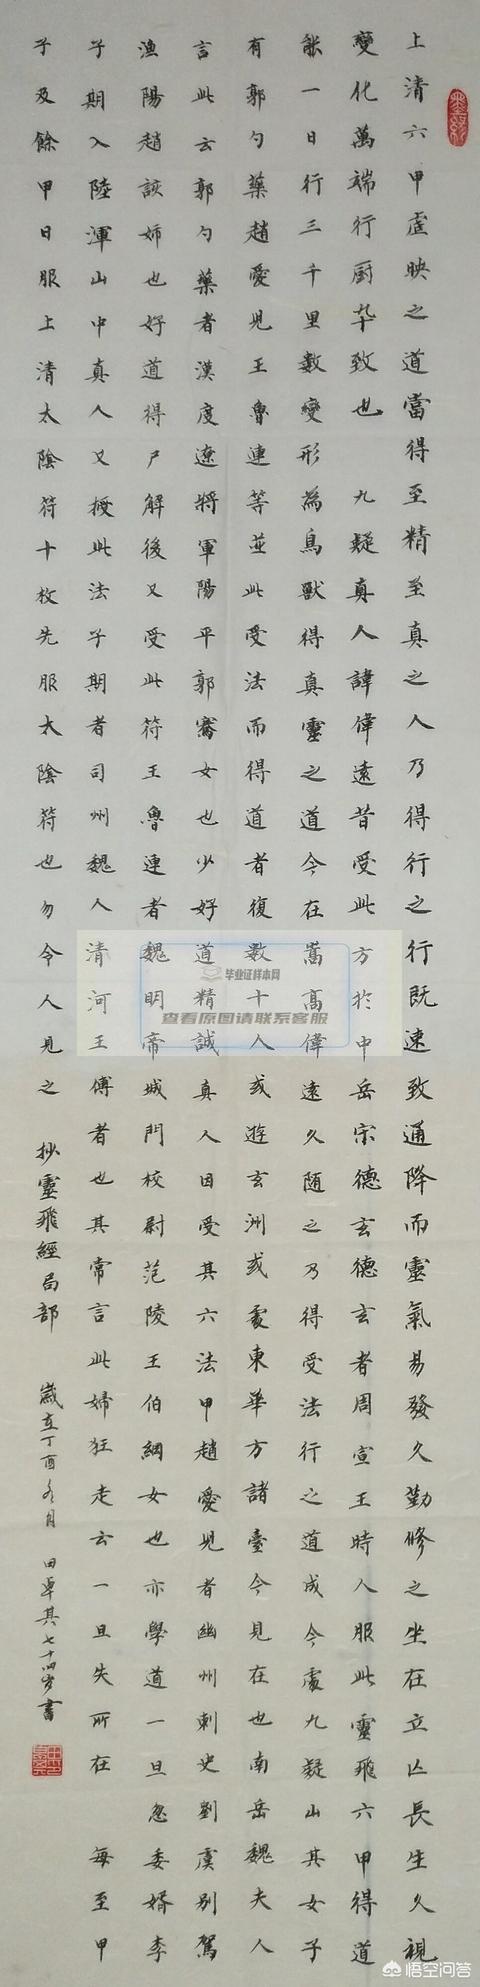 上清六甲虛映之道當得至精至真之人乃得行之行既速致通降而靈氣易發久勤修之坐在立亡長生久視
變化萬端行厨卒致也 九疑真人諱偉遠昔受此方於中岳宋德玄德玄者周宣王時人服此靈飛六甲得道
能一日行三千里數變形為鳥獸得真靈之道今在嵩高偉遠久隨之乃得受法行之道成今處九疑山其女子
有郭勺藥趙愛兒王魯連等並此受法而得道者復數十人或遊玄洲或處東華方諸臺今見在也南岳魏夫人
言此云郭勺藥者漢度遼將軍陽平郭騫女也少好道精誠真人因受其六法甲趙愛兒者幽州刺史劉虞別駕
漁陽趙該姉也好道得尸解後又受此符王魯連者魏明帝城門校尉范陵王伯綱女也亦學道一旦忽委婿李
子期入陸渾山中真人又授此法子期者司州魏人清河王傅者也其常言此婦狂走云一旦失所在 每至甲
子及餘甲日服上清太陰符十枚先服太陰符也勿令人見之 抄靈飛經局部 歲在丁酉冬月 田卓其七十四岁書
毕业证样本网
查看原图请联系客服
悟空问答